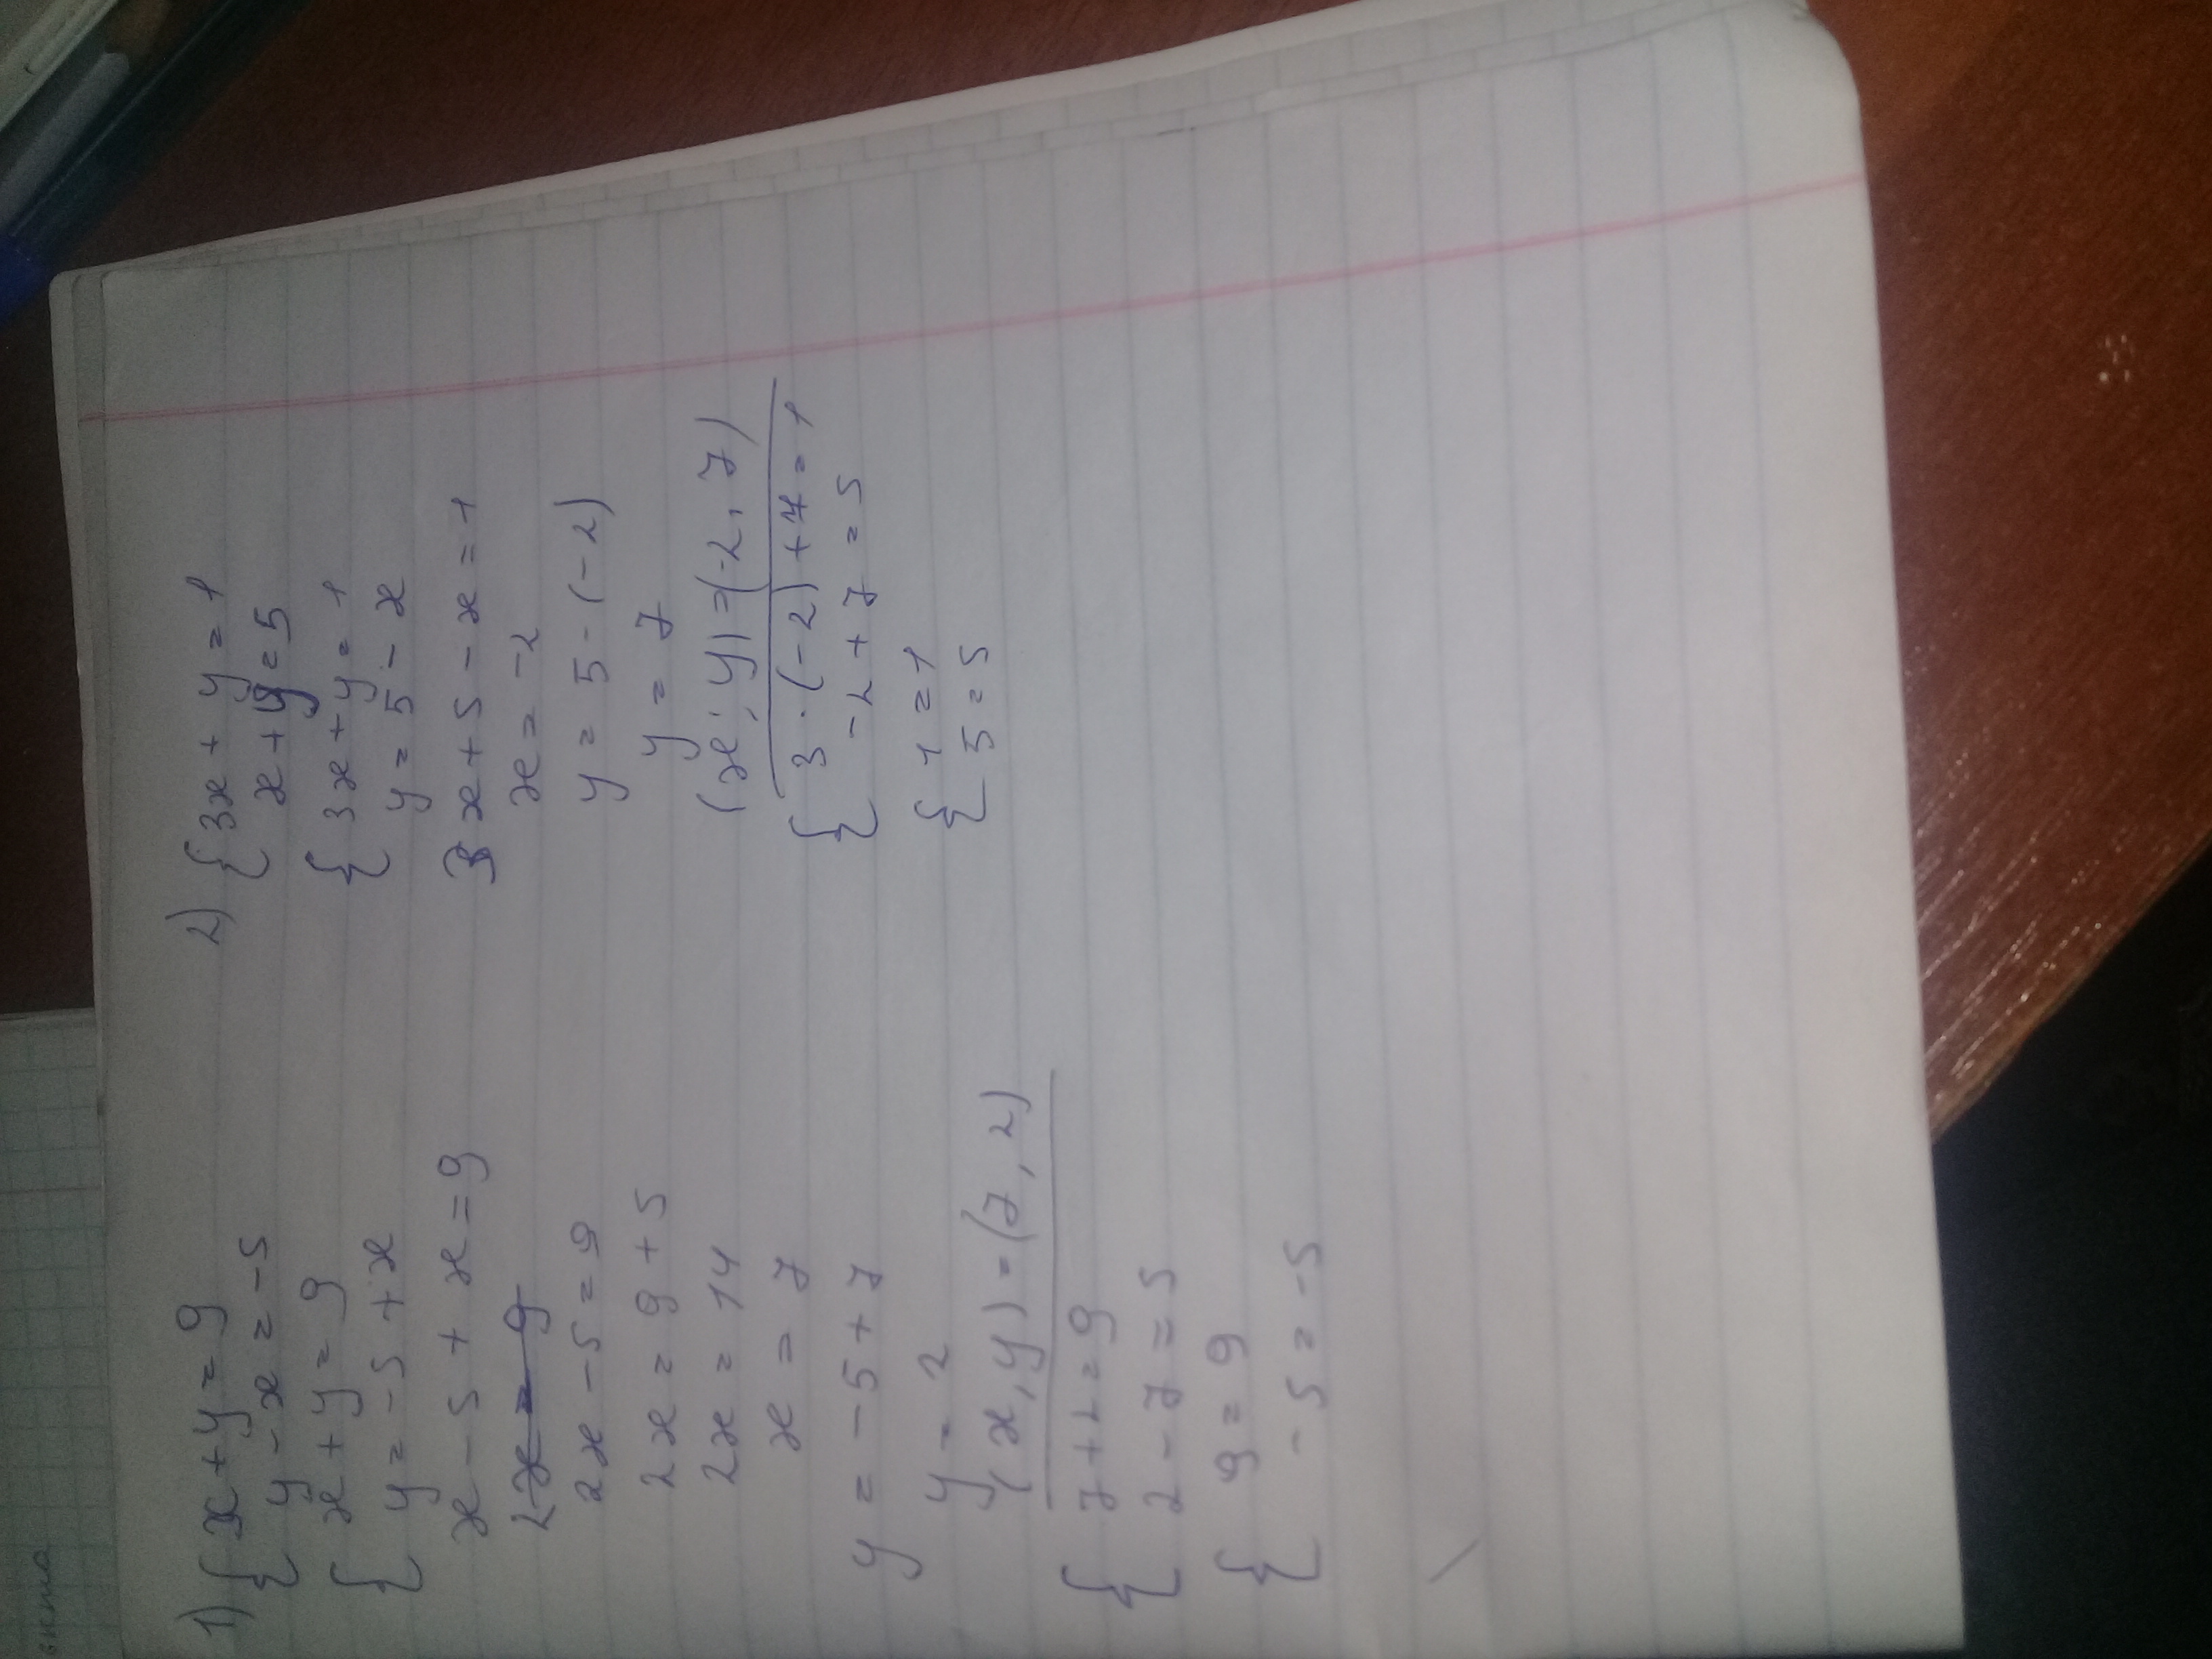 1) { x + y = 9
y - x = -5
{ x + y = 9
y = -5 + x
x - 5 + x = 9
2x = 9
2x - 5 = 9
2x = 9 + 5
2x = 14
x = 7
y = -5 + 7
y = 2
(x, y) = (7, 2)
{ 7 + 2 = 9
2 - 7 = 5
{ 9 = 9
-5 = -5
2) { 3x + y = 1
x + y = 5
{ 3x + y = 1
y = 5 - x
3x + 5 - x = 1
x = -2
y = 5 - (-2)
y = 7
(x; y) = (-2, 7)
{ 3 · (-2) + 7 = 1
-2 + 7 = 5
{ 1 = 1
5 = 5